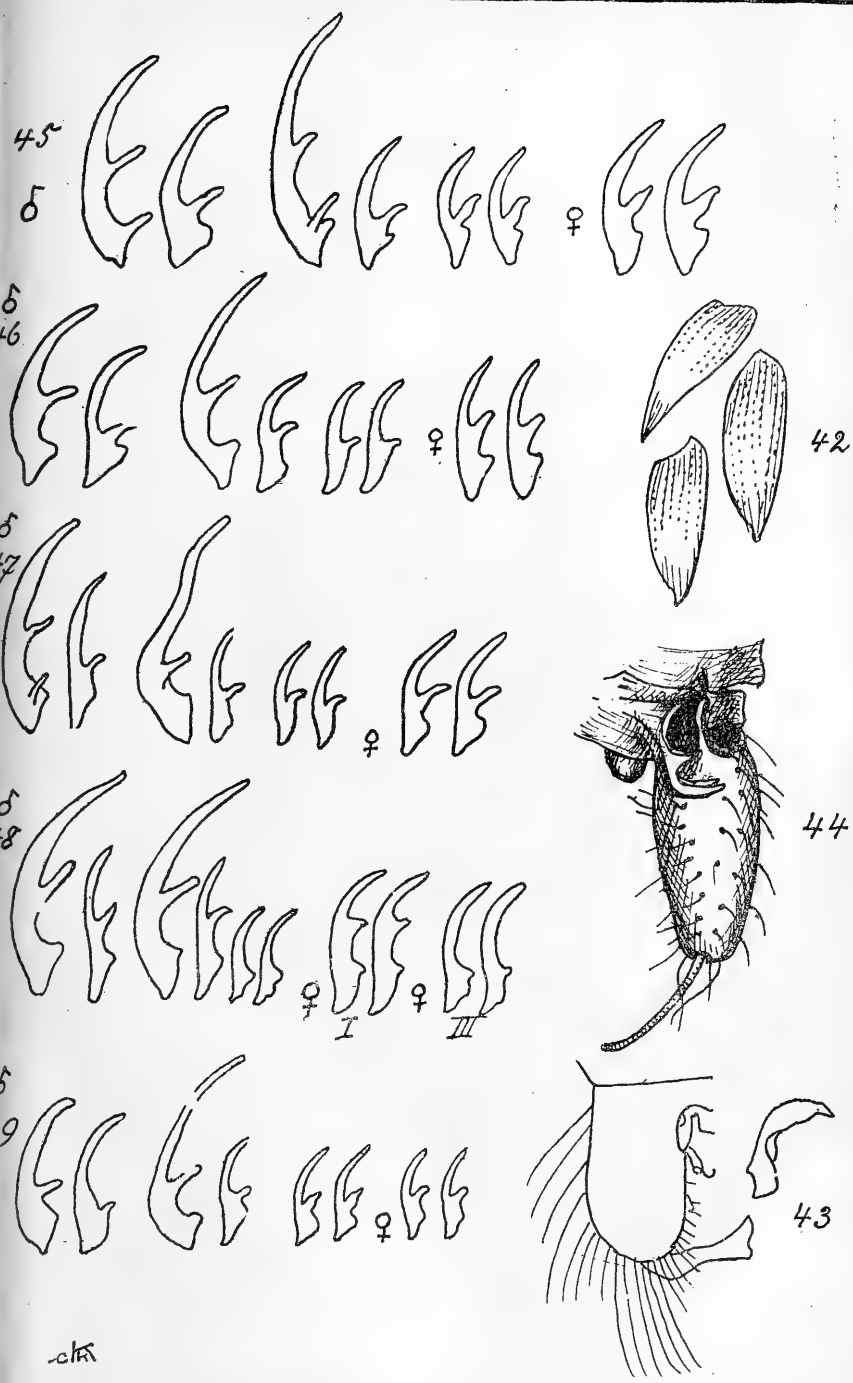 45
♂ ♀
♂
46 ♀
42
♂
47 ♀
44
♂
48 ♀ I ♀ III
♂
49 ♀
43